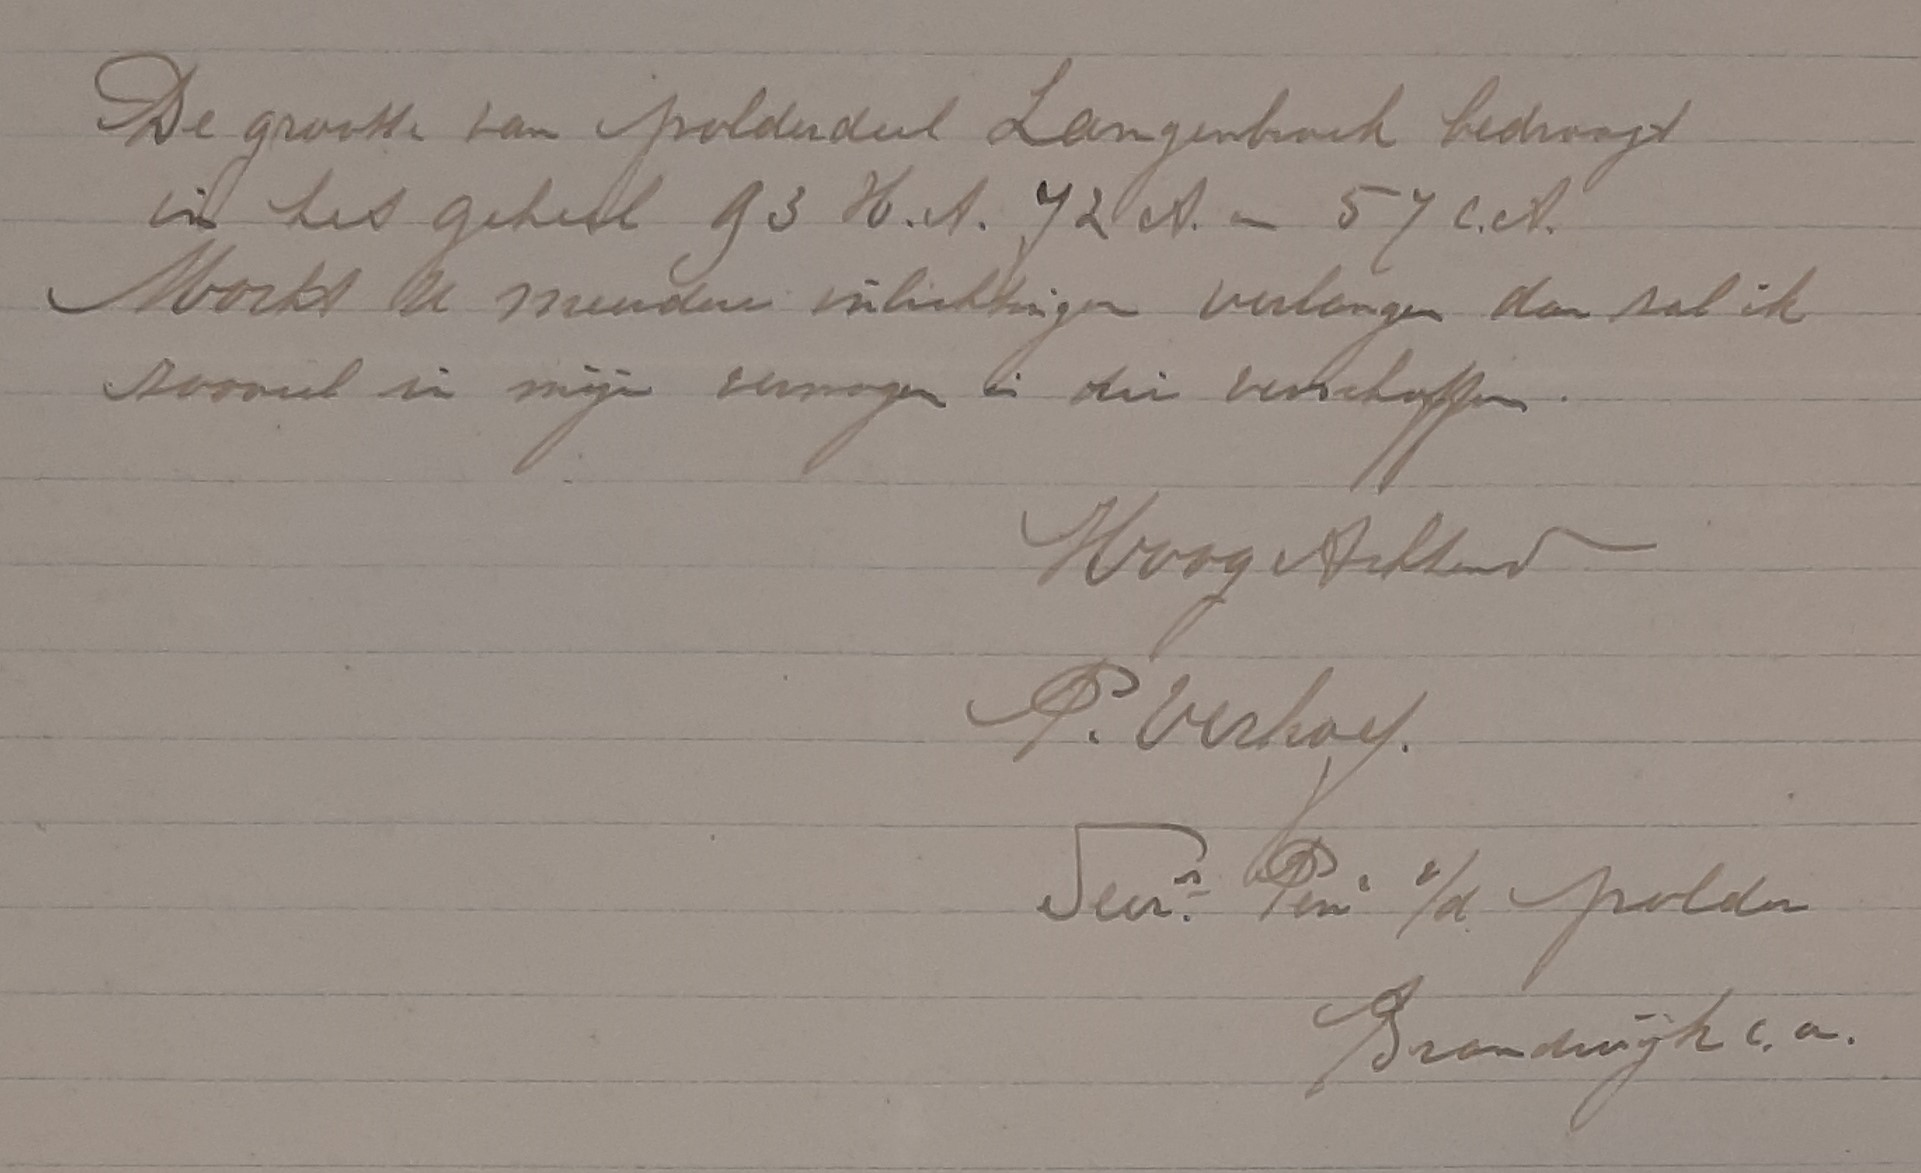 De grootte van polderdeel Langenbroek bedraagt
in het geheel 93 H.A. 72 A. - 57 c.A.
Mocht U meerdere inlichtingen verlangen dan zal ik
zooveel in mijn vermogen is die verschaffen.
Hoog Achtend
P. Verhoef.
Secr. Penr v/d polder
Brandwijk c.a.